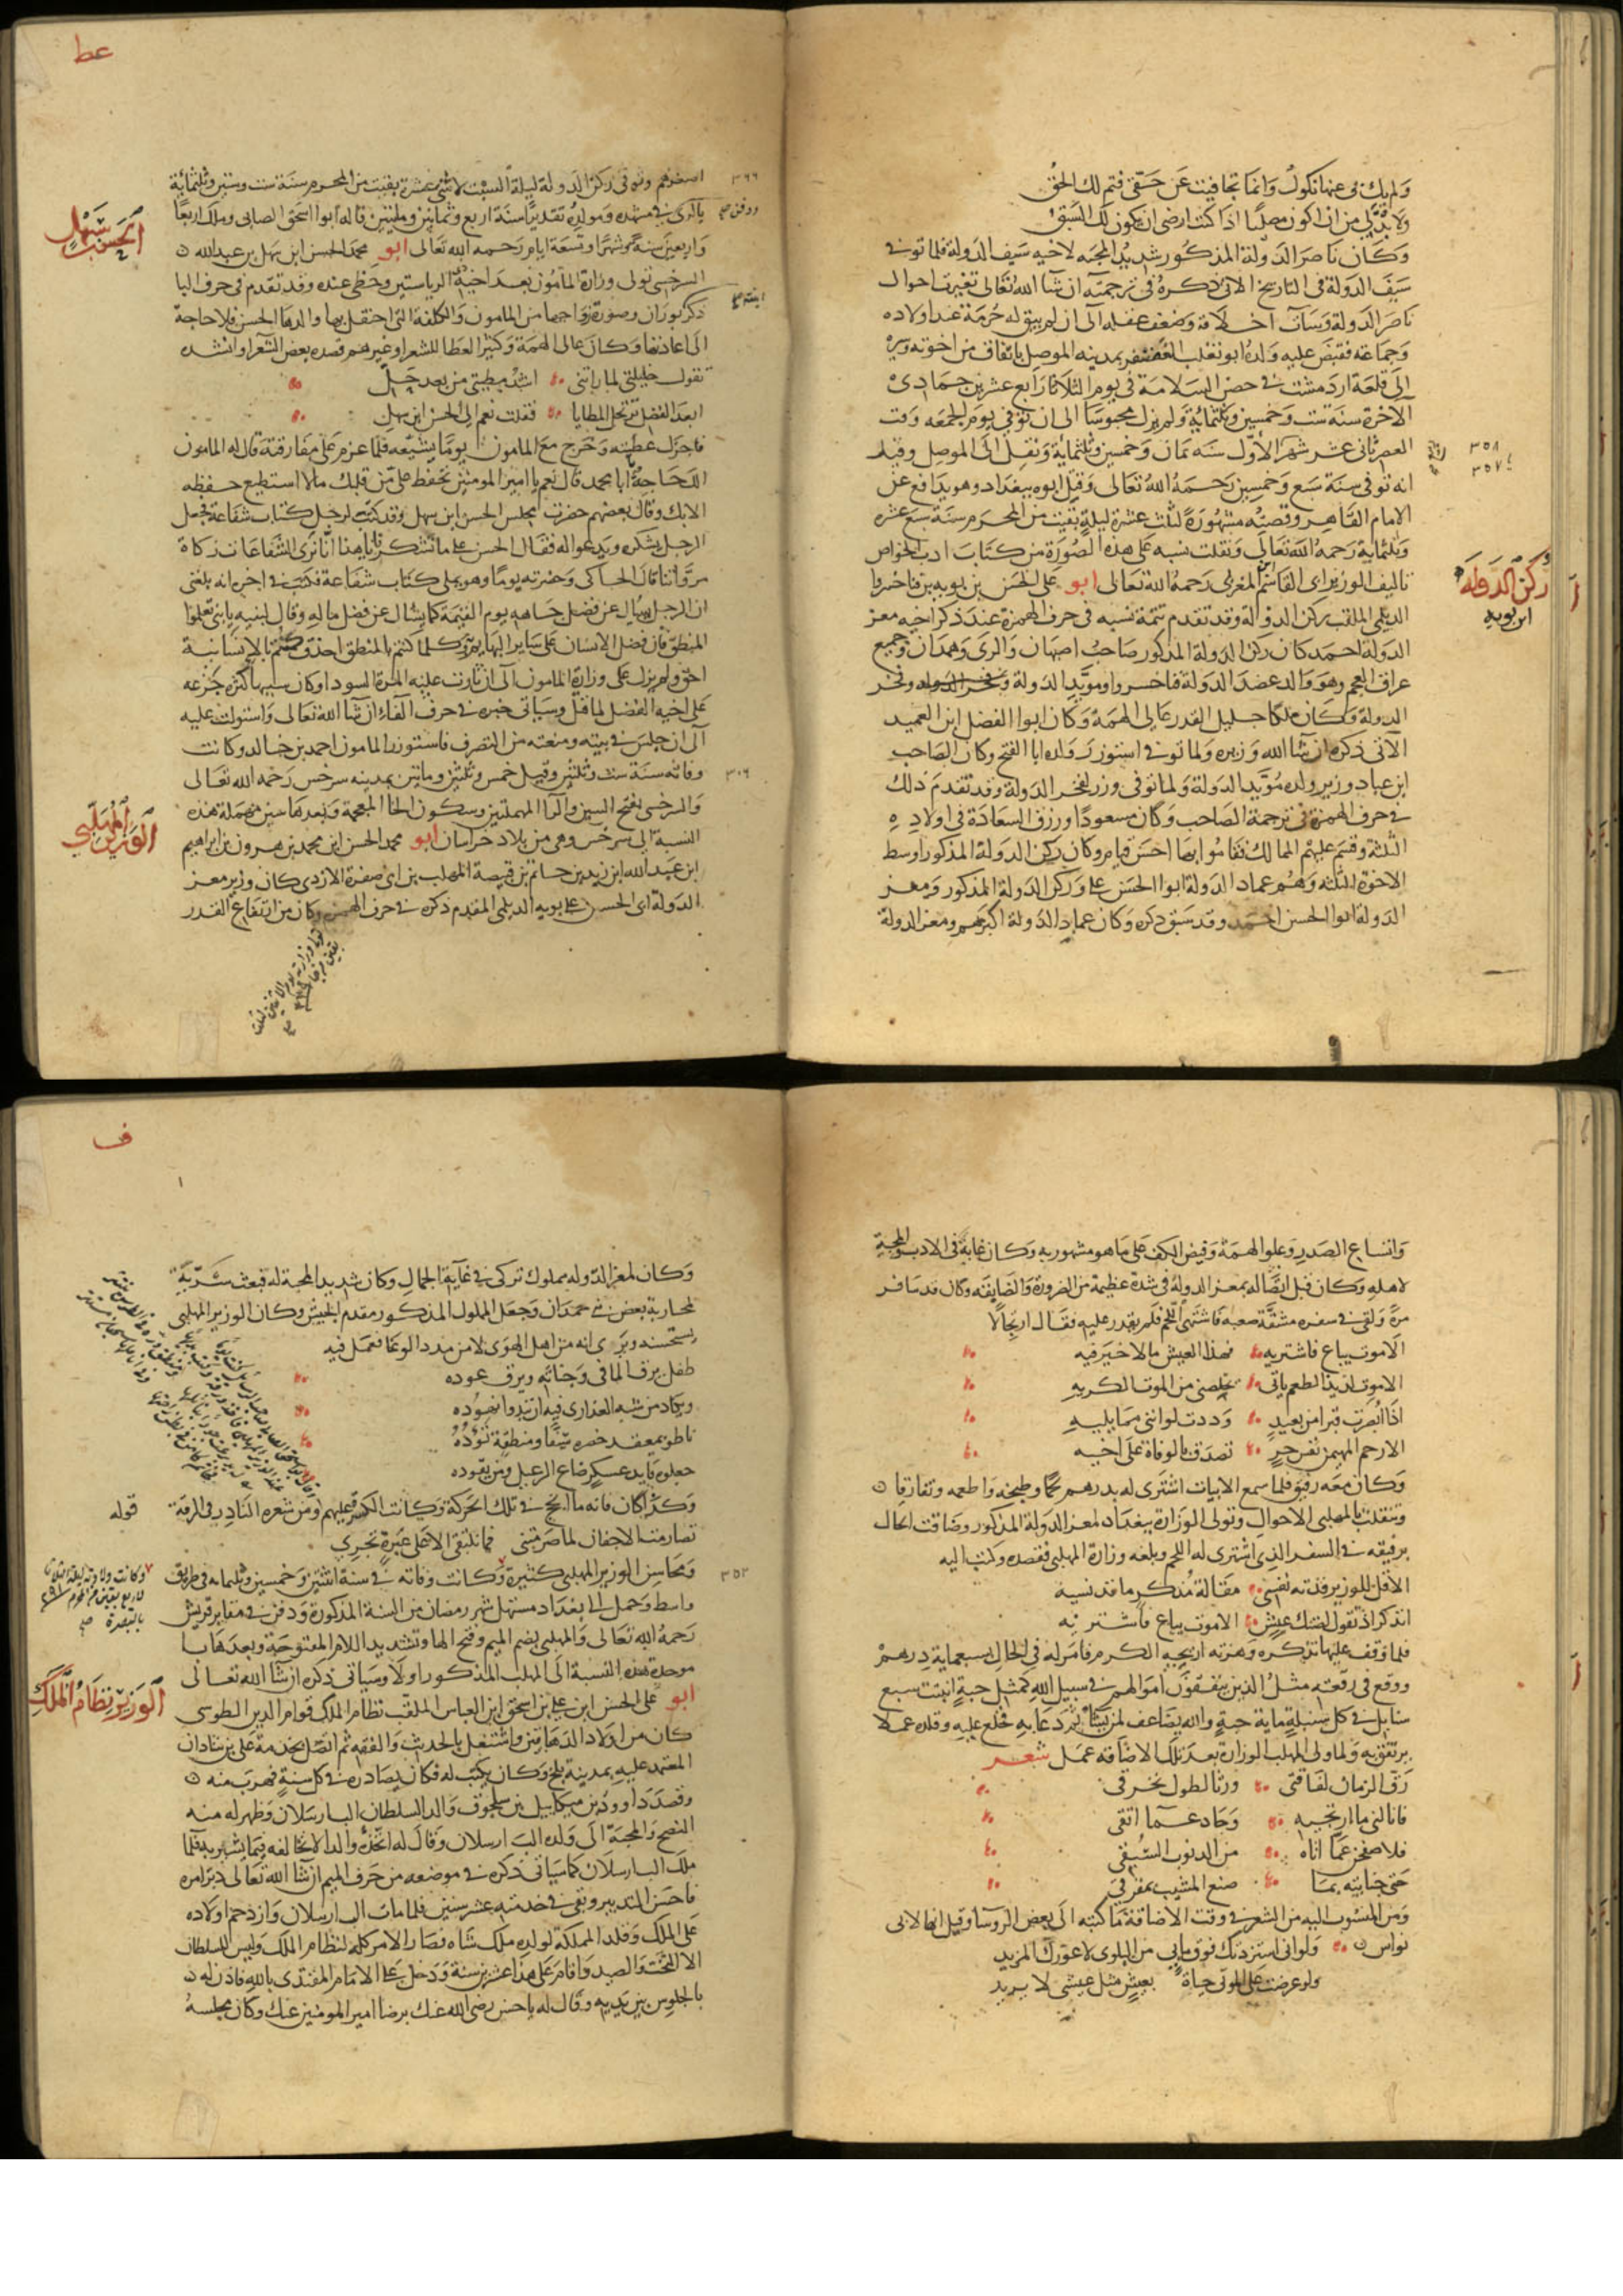 ولم يك بي عنها نكول وانما تجافيت عن حقي فتم لك الحق
ولا بد لي من ان اكون مصليا اذا كنت ارضى ان يكون لك السبق
وكان ناصر الدولة المذكور شديد المحبه لاخيه سيف الدولة فلما توفي
سيف الدولة في التاريخ الاتي ذكره في ترجمته ان شا الله تعالى تغيرت احوال
ناصر الدولة وسات اخلاقه وضعف عقله الى ان لم يبق له حرمة عند اولاده
وجماعته فقبض عليه ولده ابو تغلب الغضنفر بمدينه الموصل باتفاق من اخوته وسيره
الى قلعة اردمشت في حصن السلامة في يوم الثلاثا رابع عشرين جمادى
الاخرة سنة ست وخمسين وثلثماية ولم يزل محبوسا الى ان توفي يوم الجمعه وقت
العصر ثاني عشر شهر الاول سنه ثمان وخمسين وثلثماية ونقل الى الموصل وقيل
٣٥٨
٣٥٧
انه توفي سنة سبع وخمسين رحمه الله تعالى وقتل ابوه ببغداد وهو يدافع عن
الامام القاهر وقصته مشهورة لثلث عشرة ليلة بقيت من المحرم سنة سبع عشره
وثلثماية رحمه الله تعالى ونقلت نسبه على هذه الصورة من كتاب ادب الخواص
تاليف الوزير ابي القاسم ابن المغربي رحمه الله تعالى ابو علي الحسن بن بويه بن فناخسروا
ركن الدوله
ابن بويه
الديلمي الملقب ركن الدولة وقد تقدم تتمة نسبه في حرف الهمزة عند ذكر اخيه معز
الدولة احمد كان ركن الدولة المذكور صاحب اصبهان والري وهمدان وجميع
عراق العجم وهو والد عضد الدولة فاخسروا ومويد الدولة وفخر
الدولة وكان ملكا جليل القدر عالي الهمة وكان ابوا الفضل ابن العميد
الاتي ذكره ان شا الله وزيره ولما توفي استوزر ولده ابا الفتح وكان الصاحب
ابن عباد وزير ولده مؤيد الدولة ولما توفي وزر لفخر الدولة وقد تقدم ذلك
في حرف الهمزة في ترجمة الصاحب وكان مسعودا ورزق السعادة في اولاده
الثلثة وقسم عليهم الممالك فقاموا بها احسن قيام وكان ركن الدولة المذكور اوسط
الاخوة الثلثه وهم عماد الدولة ابوا الحسن علي وركن الدولة المذكور ومعز
الدولة ابوا الحسن احمد وقد سبق ذكره وكان عماد الدولة اكبرهم ومعز الدولة
عط
اصغرهم وتوفي ركن الدولة ليلة السبت لاثني عشرة بقيت من المحرم سنة ست وستين وثلثماية
٣٦٦
بالري في مشهده ومولده تقديرا سنة اربع وثمانين ومايتين قاله ابوا اسحق الصابي وملك اربعا
ودفن صح
واربعين سنة وشهرا وتسعة ايام رحمه الله تعالى ابو محمد الحسن ابن سهل بن عبد الله
الحسن بن سهل
السرخسي تولى وزارة المامون بعد اخيه ذي الرياستين وحظي عنده وقد تقدم في حرف البا
ذكر بوران وصورة زواجها من المامون والكلفة التي احتفل بها والدها الحسن فلا حاجة
ابنته صح
الى اعادتها وكان عالي الهمة وكثير العطا للشعرا وغيرهم قصده بعض الشعرا وانشده
تقول خليلتي لما راتني اشد مطيتي من بعد حل
ابعد الفضل ترتحل المطايا فقلت نعم الى الحسن ابن سهل
فاجزل عطيته وخرج مع المامون يوما يشيعه فلما عزم على مفارقته قال له المامون
الك حاجة ابا محمد قال نعم يا امير المومنين تحفظ علي من قلبك ما لا استطيع حفظه
الا بك وقال بعضهم حضرت مجلس الحسن ابن سهل وقد كتب لرجل كتاب شفاعة فجعل
الرجل يشكره ويدعو اله فقال الحسن على ما تشكرنا يا هذا انا نرى الشفاعات زكاة
مروآتنا قال الحاكي وحضرته يوما وهو يملي كتاب شفاعة فكتب في اخره انه بلغني
ان الرجل يسال عن فضل جاهه يوم القيمة كما يسال عن فضل ماله وقال لبنيه يا بني تعلموا
المنطق فان فضل الانسان على ساير البهايم به وكلما كنتم بالمنطق احذق كنتم بالانسانية
احق ولم يزل على وزارة المامون الى ان ثارت عليه المرة السودا وكان سببها كثرة جزعه
على اخيه الفضل لما قتل وسياتي خبره في حرف الفاء ان شا الله تعالى واستولت عليه
الى ان حبس في بيته ومنعته من التصرف فاستوزر المامون احمد بن خالد وكانت
وفاته سنة ست وثلثين وقيل خمس وثلثين ومايتين بمدينه سرخس رحمه الله تعالى
والسرخسي بفتح السين والرا المهملتين وسكون الخا المعجمة وبعدها سين مهملة هذه
النسبة الى سرخس وهي من بلاد خراسان ابو محمد الحسن ابن محمد بن هرون بن ابراهيم
الوزير المهلبي
ابن عبد الله ابن زيد بن حاتم بن قبيصة المهلب بن ابي صفرة الازدي كان وزير معز
الدولة ابي الحسن علي بويه الديلمي المقدم ذكره في حرف الهمزه وكان من ارتفاع القدر
واتساع الصدر وعلو الهمة وفيض الكف على ما هو مشهور به وكان غاية في الادب والمحبة
لاهله وكان قبل اتصاله بمعز الدولة في شدة عظيمة من الضرورة والضايقه وكان قد سافر
مرة ولقي في سفره مشقة صعبه فاشتهى اللحم فلم يقدر عليه فقال ارتجالا
الا موت يباع فاشتريه فهذا العيش ما لا خير فيه
الا موت لذيذ الطعم ياتي يخلصني من الموت الكريه
اذا ابصرت قبرا من بعيد وددت لو انني مما يليه
الا رحم المهيمن نفس حر تصدق بالوفاة على اخيه
وكان معه رفيق فلما سمع الابيات اشترى له بدرهم لحما وطبخه واطعمه وتفارقا
وتنقلت بالمهلبي الاحوال وتولى الوزارة ببغداد لمعز الدولة المذكور وضاقت الحال
برفيقه في السفر الذي اشترى له اللحم وبلغه وزارة المهلبي فقصده وكتب اليه
الا قل للوزير فدته نفسي مقالة مذكر ما قد نسيه
اتذكر اذ تقول لضنك عيش الا موت يباع فاشتريه
فلما وقف عليها تذكره وهزته اريحيه الكرم فامر له في الحال بسبعماية درهم
ووقع في رقعته مثل الذين ينفقون اموالهم في سبيل الله كمثل حبة انبتت سبع
سنابل في كل سنبلة ماية حبة والله يضاعف لمن يشاء ثم دعا به فخلع عليه وقلده عملا
يرتفق به ولما ولي المهلب الوزارة بعد تلك الاضاقه عمل شعر
رق الزمان لفاقتي ورثا لطول تحرقي
فانالني ما ارتجيه وحاد عما اتقي
فلاصفحن عما اتاه من الذنوب السبق
حتى جنايته بما صنع المشيب بمفرقي
ومن المنسوب اليه من الشعر في وقت الاضاقة ما كتبه الى بعض الروسا وقيل انها لابي
نواس ولو اني استزدتك فوق ما بي من البلوى لاعوزك المزيد
ولو عرضت على الموتى حياة بعيش مثل عيشي لا يريد
ف
وكان لمعز الدوله مملوك تركي في غاية الجمال وكان شديد المحبة له فبعث سرية
لمحاربة بعض بني حمدان وجعل المملوك المذكور مقدم الجيش وكان الوزير المهلبي
يستحسنه ويرى انه من اهل الهوى لا من مدد الوغا فعمل فيه
طفل يرق الما في وجناته ويرق عوده
ويكاد من شبه العذارى فيه ان تبدوا نهوده
ناطو بمعقد خصره سيفا ومنطقة تؤده
جعلوه قايد عسكر ضاع الرعيل ومن يقوده
وكذا كان فانه ما انجح في تلك الحركة وكانت الكسرة عليهم ومن شعره النادر في الرقة قوله
تصارمت الاجفان لما صرمتني فما تلتقي الا على عبرة تجري
ومحاسن الوزير المهلبي كثيرة وكانت وفاته في سنة اثنتين وخمسين وثلثمايه في طريق
٣٥٢
وكانت ولادته ليلة الثلاثا لاربع بقين من المحرم ٢٩١ بالبصرة صح
واسط وحمل الى بغداد مستهل شهر رمضان من السنة المذكورة ودفن في مقابر قريش
رحمه الله تعالى والمهلبي بضم الميم وفتح الها وتشديد اللام المفتوحة وبعدها با
موحدة هذه النسبة الى المهلب المذكور اولا وسياتي ذكره ان شا الله تعالى
ابو علي الحسن ابن علي بن اسحق ابن العباس الملقب نظام الملك قوام الدين الطوسي
الوزير نظام الملك
كان من اولاد الدهاقين واشتغل بالحديث والفقه ثم اتصل بخدمة علي بن شاذان
المعتمد عليه بمدينة بلخ وكان يكتب له فكان يصادره في كل سنة فهرب منه
وقصد داوود بن ميكاييل بن سلجوق والد السلطان الب ارسلان وظهر له منه
النصح والمحبة الى ولده الب ارسلان وقال له اتخذه والدا لا تخالفه فيما يشير به فلما
ملك الب ارسلان كما سياتي ذكره في موضعه من حرف الميم ان شا الله تعالى دبر امره
فاحسن التدبير وبقي في خدمته عشر سنين فلما مات الب ارسلان وازدحم اولاده
على الملك وقلد المملكة لولده ملك شاه فصار الامر كله لنظام الملك وليس للسلطان
الا التخت والصيد واقام على هذا عشرين سنة ودخل على الامام المقتدي بالله فاذن له
بالجلوس بين يديه وقال له يا حسن رضي الله عنك برضا امير المومنين عنك وكان مجلسه